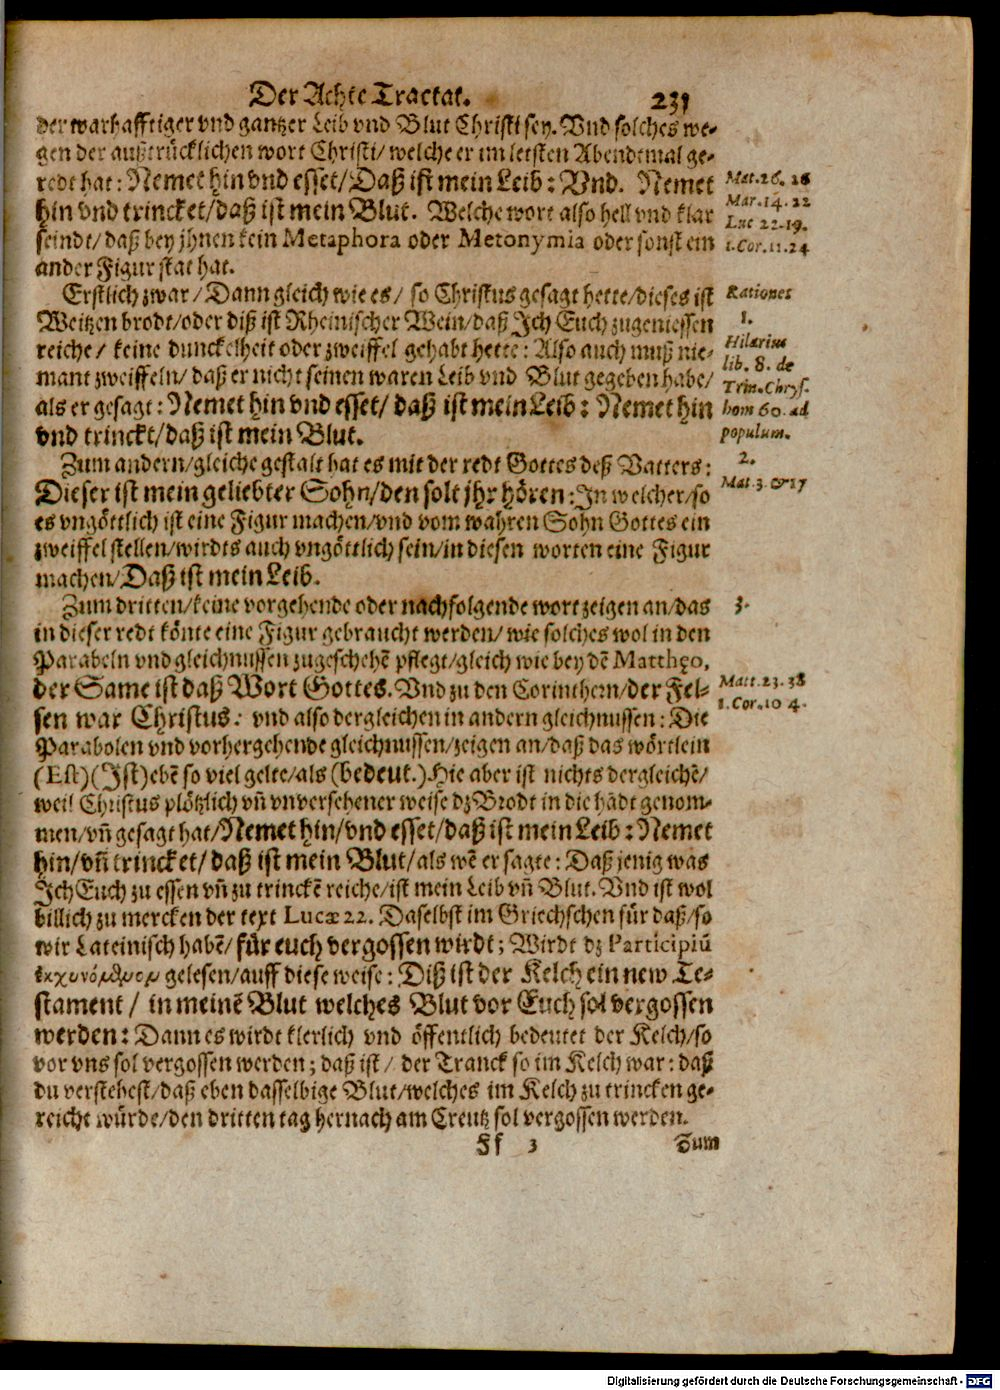 Der Achte Tractat. 231
der warhafftiger vnd gantzer Leib vnd Blut Christi sey. Vnd solches we-
gen der außtrücklichen wort Christi/ welche er im letsten Abendtmal ge-
redt hat: Nemet hin vnd esset/ Daß ist mein Leib: Vnd. Nemet
hin vnd trincket/ daß ist mein Blut. Welche wort also hell vnd klar
seindt/ daß bey jhnen kein Metaphora oder Metonymia oder sonst ein
ander Figur stat hat.
Mat. 26. 26
Mar. 14. 22
Luc 22. 19.
1. Cor. 11. 24
Erstlich zwar/ Dann gleich wie es/ so Christus gesagt hette/ dieses ist
Weitzen brodt/ oder diß ist Rheinischer Wein/ daß Ich Euch zugeniessen
reiche/ keine dunckelheit oder zweiffel gehabt hette: Also auch muß nie-
mant zweiffeln/ daß er nicht seinen waren Leib vnd Blut gegeben habe/
als er gesagt: Nemet hin vnd esset/ daß ist mein Leib: Nemet hin
vnd trinckt/ daß ist mein Blut.
Rationes
1.
Hilarius
lib. 8. de
Trin. Chrys.
hom 60. ad
populum.
Zum andern/ gleiche gestalt hat es mit der redt Gottes deß Vatters:
Dieser ist mein geliebter Sohn/ den solt jhr hören: In welcher/ so
es vngöttlich ist eine Figur machen/ vnd vom wahren Sohn Gottes ein
zweiffel stellen/ wirdts auch vngöttlich sein/ in diesen worten eine Figur
machen/ Daß ist mein Leib.
2.
Mat. 3. & 17
Zum dritten/ keine vorgehende oder nachfolgende wort zeigen an/ das
in dieser redt könte eine Figur gebraucht werden/ wie solches wol in den
Parabeln vnd gleichnussen zugeschehẽ pflegt/ gleich wie bey dẽ Matthęo,
der Same ist daß Wort Gottes. Vnd zu den Corinthern/ der Fel-
sen war Christus: vnd also dergleichen in andern gleichnussen: Die
Parabolen vnd vorhergehende gleichnussen/ zeigen an/ daß das wörtlein
(Est) (Ist) ebẽ so viel gelte/ als (bedeut.) Hie aber ist nichts dergleichẽ/
weil Christus plötzlich vñ vnversehener weise dz Brodt in die hãdt genom-
men/ vñ gesagt hat/ Nemet hin/ vnd esset/ daß ist mein Leib: Nemet
hin/ vñ trincket/ daß ist mein Blut/ als wẽ er sagte: Daß jenig was
Ich Euch zu essen vñ zu trinckẽ reiche/ ist mein Leib vñ Blut. Vnd ist wol
billich zu mercken der text Lucæ 22. Daselbst im Griechschen für daß/ so
wir Lateinisch habẽ/ für euch vergossen wirdt; Wirdt dz Participiũ
ἐκχυνόμενον gelesen/ auff diese weise: Diß ist der Kelch ein new Te-
stament/ in meinẽ Blut welches Blut vor Euch sol vergossen
werden: Dann es wirdt klerlich vnd öffentlich bedeutet der Kelch/ so
vor vns sol vergossen werden; daß ist/ der Tranck so im Kelch war: daß
du verstehest/ daß eben dasselbige Blut/ welches im Kelch zu trincken ge-
reiche würde/ den dritten tag hernach am Creutz sol vergossen werden.
3.
Matt. 23. 38
1. Cor. 10 4.
Ff 3 Zum
Digitalisierung gefördert durch die Deutsche Forschungsgemeinschaft - DFG